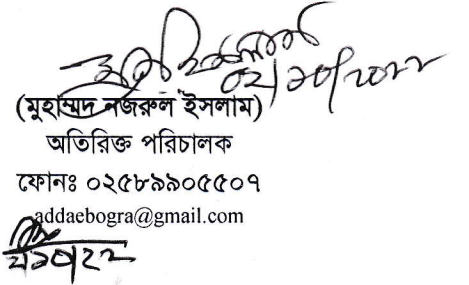 ০২/১০/২০২২
(মুহাম্মদ নজরুল ইসলাম)
অতিরিক্ত পরিচালক
ফোনঃ ০২৫৮৯৯০৫৫০৭
addaebogra@gmail.com